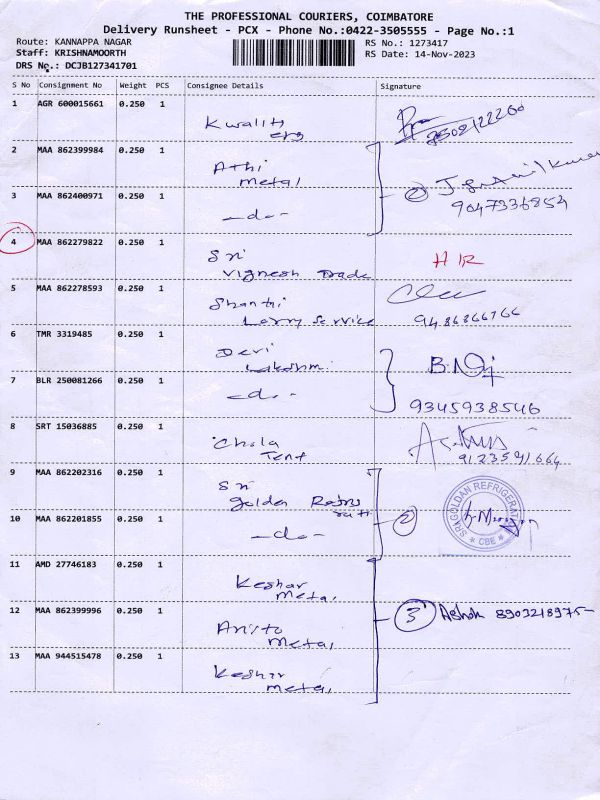 THE PROFESSIONAL COURIERS, COIMBATORE
Delivery Runsheet - PCX - Phone No.:0422-3505555 - Page No.:1
Route: KANNAPPA NAGAR
RS No.: 1273417
Staff: KRISHNAMOORTH
RS Date: 14-Nov-2023
DRS No.: DCJB127341701
S No Consignment No Weight PCS Consignee Details Signature
1 AGR 600015661 0.250 1
Kwality
2 MAA 862399984 0.250 1
Athi
metal
3 MAA 862400971 0.250 1
-do-
② 9047336854
4 MAA 862279822 0.250 1
Sri
Vignesh Trade
5 MAA 862278593 0.250 1
Shanthi
Lorry Service
6 TMR 3319485 0.250 1
Devi
Lakshmi
7 BLR 250081266 0.250 1
-do-
9345938546
8 SRT 15036885 0.250 1
Chola
Tent
9123591664
9 MAA 862202316 0.250 1
Sri
golden
10 MAA 862201855 0.250 1
-do-
②
CBE
11 AMD 27746183 0.250 1
Keshar
metal
12 MAA 862399996 0.250 1
metal
③ Ashok 8903218975-
13 MAA 944515478 0.250 1
Keshar
metal